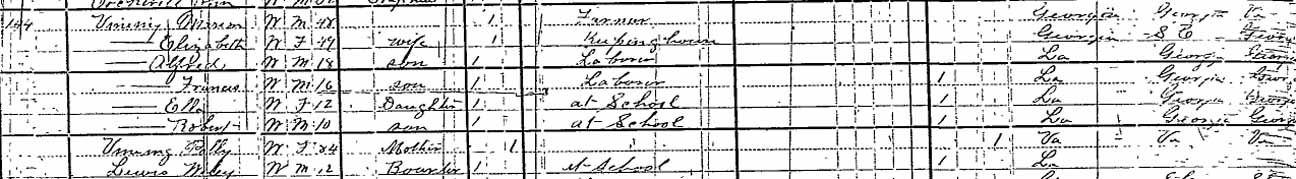 W M
144 Vining W M 48 1 Farmer Georgia Georgia Va
— Elizabeth W F 49 wife 1 Keeping house Georgia S C Georgia
— Alfred W M 18 son 1 Laborer La Georgia Georgia
— Francis W M 16 son 1 Laborer 1 La Georgia Georgia
— Ella W F 12 Daughter 1 at School 1 La Georgia Georgia
— Robert W M 10 son 1 at School 1 La Georgia Georgia
Vining Polly W F 84 Mother 1 1 Va Va Va
Lewis Wiley W M 12 Boarder 1 at School 1 La